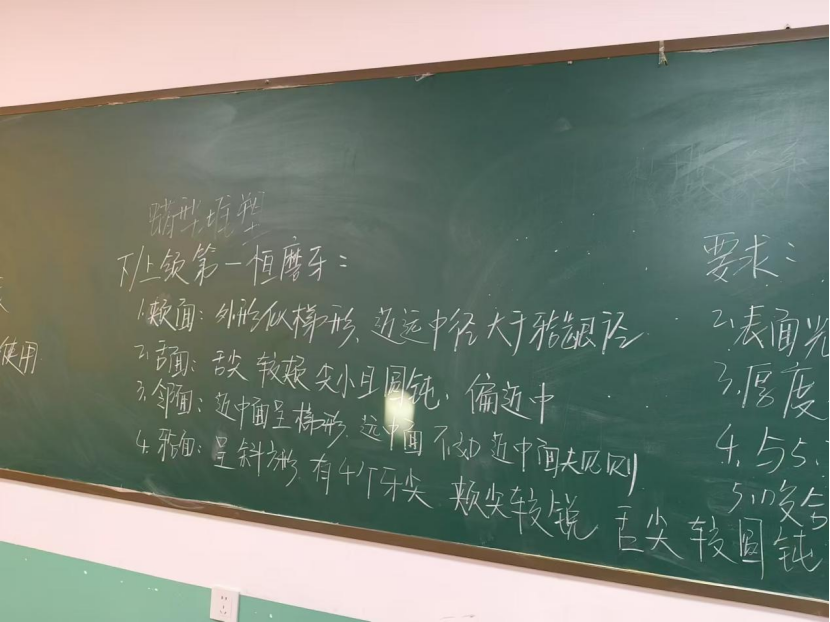 蜡型堆塑
下/上颌第一恒磨牙：
1.颊面：外形似梯形、近远中径大于𬌗龈径
2.舌面：舌尖较颊尖小且圆钝、偏近中
3.邻面：近中面呈梯形、远中面不如近中面规则
4.𬌗面：呈斜方形、有4个牙尖 颊尖较锐 舌尖较圆钝
使用
要求：
2.表面光
3.厚度
4.与5.
5.咬合